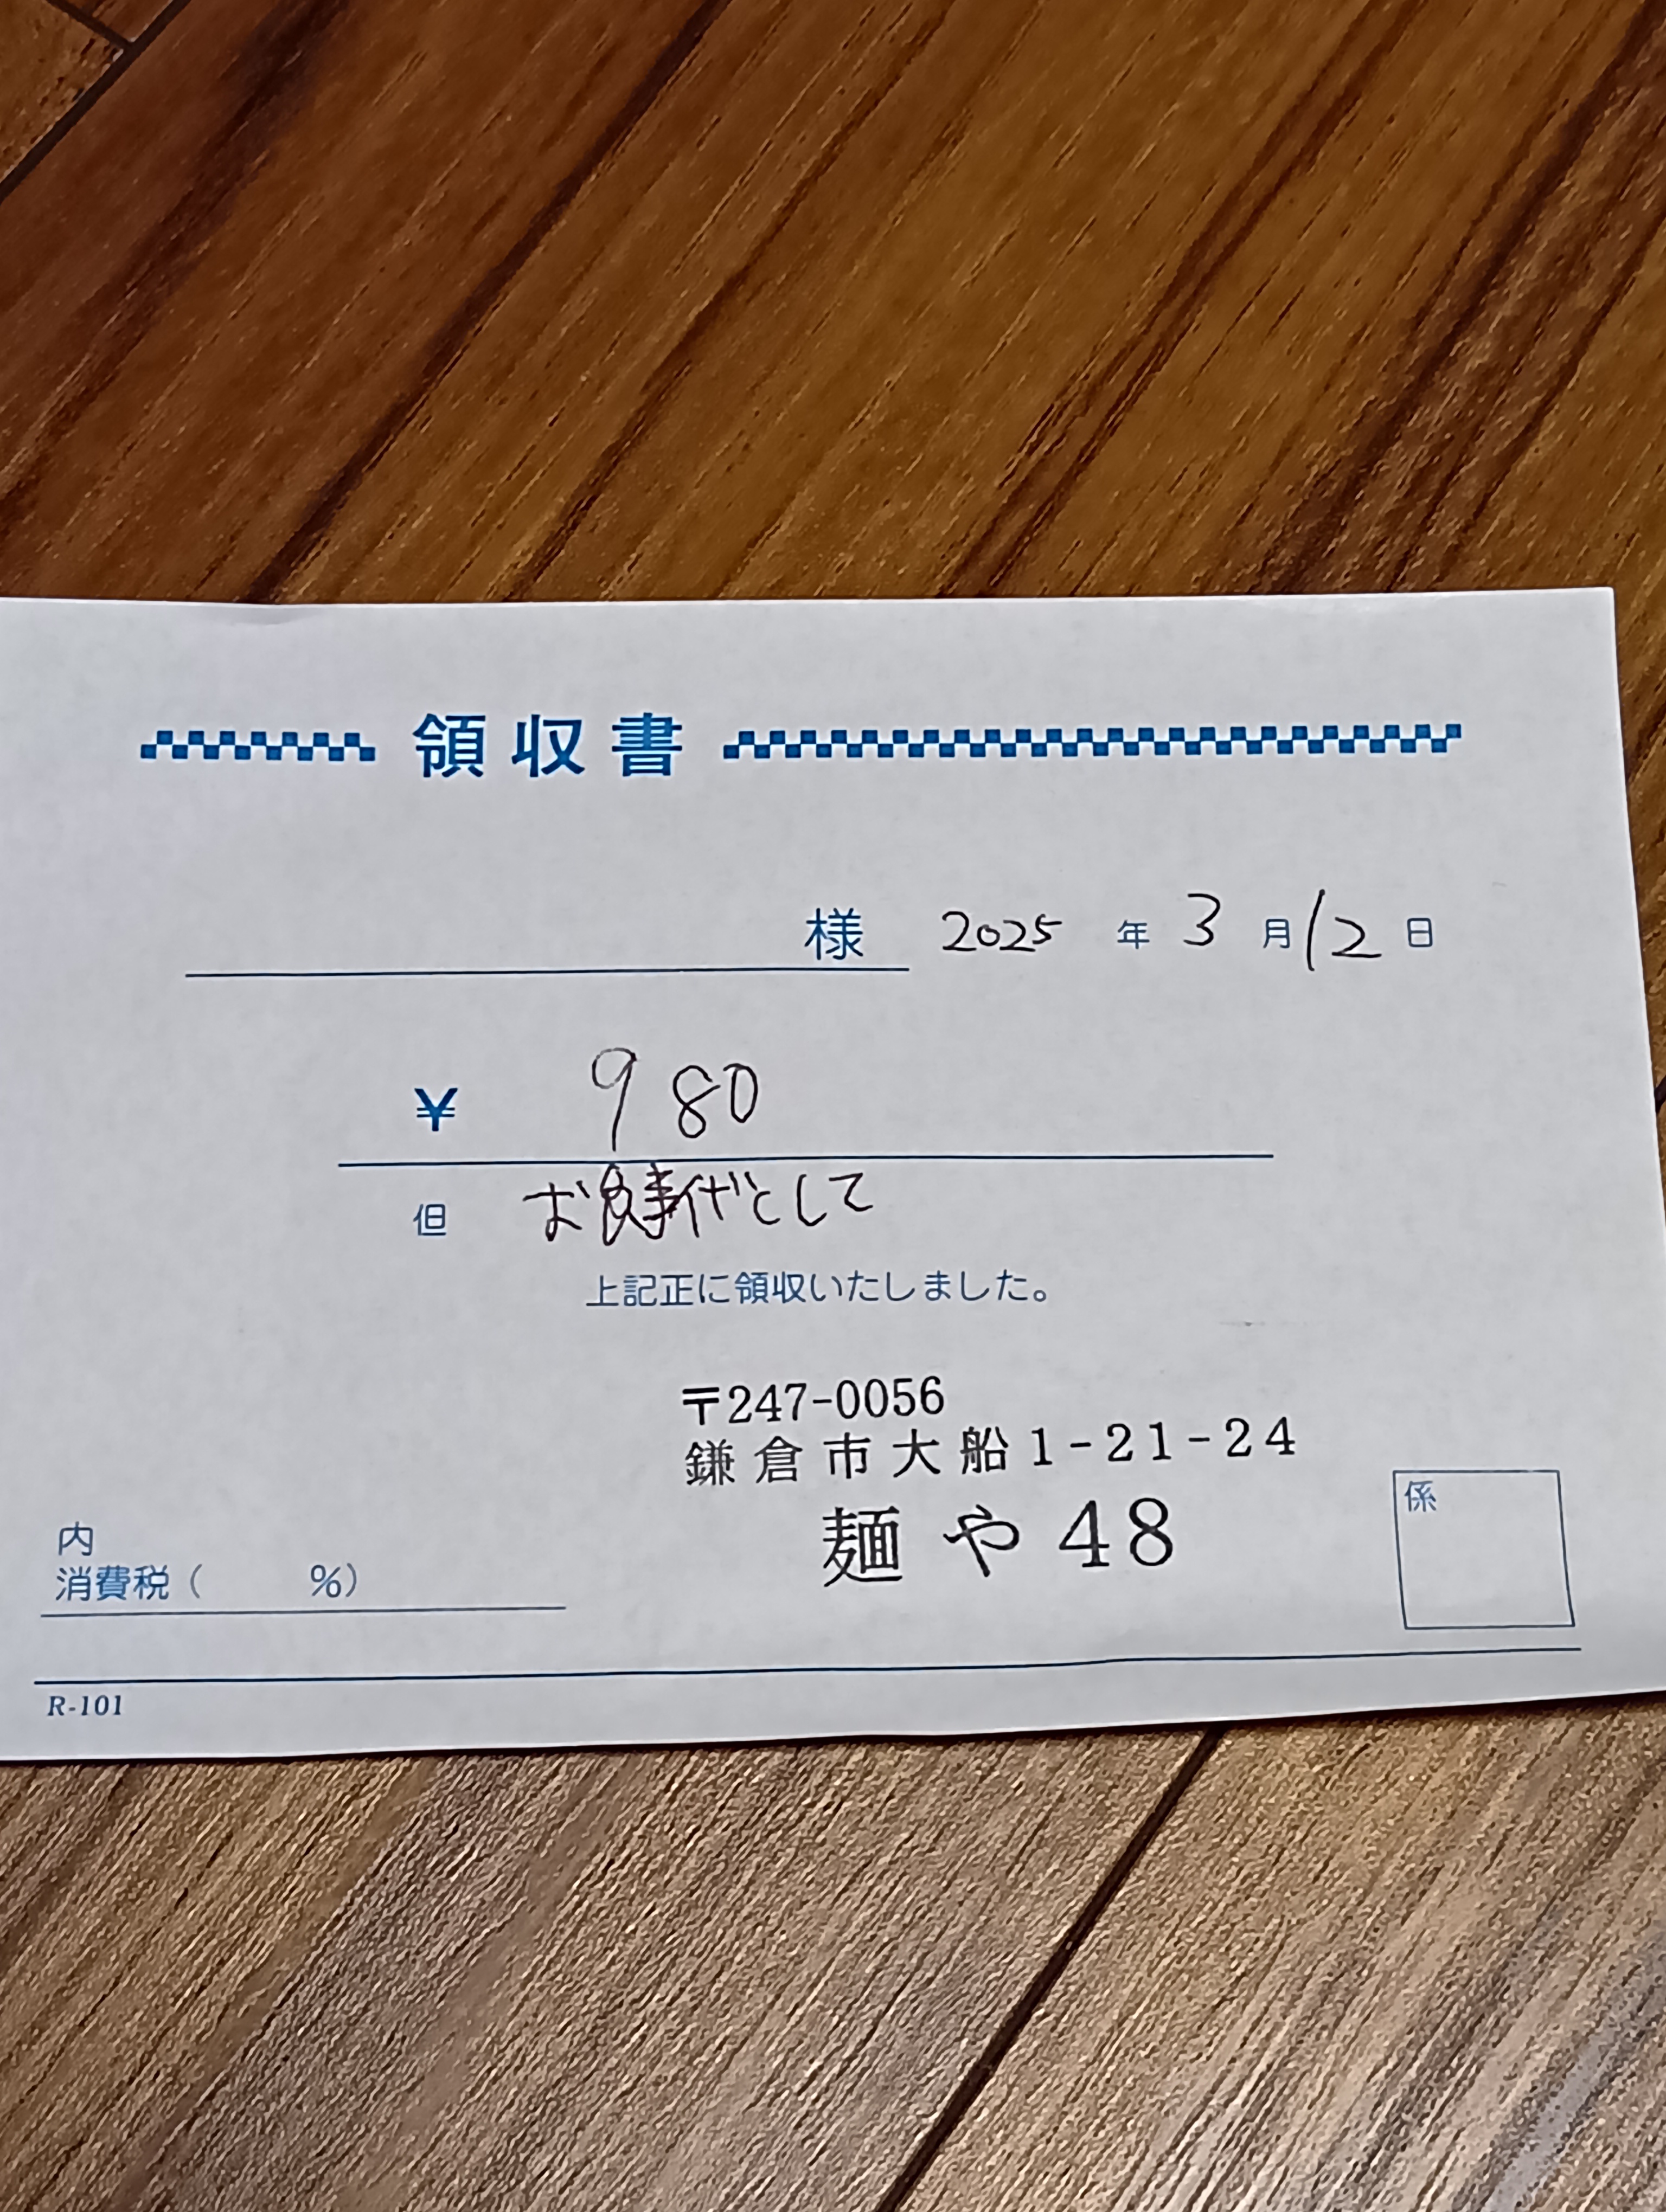 領収書
様 2025年3月12日
¥ 980
但 お食事代として
上記正に領収いたしました。
〒247-0056
鎌倉市大船1-21-24
麺や48
係
内
消費税( %)
R-101